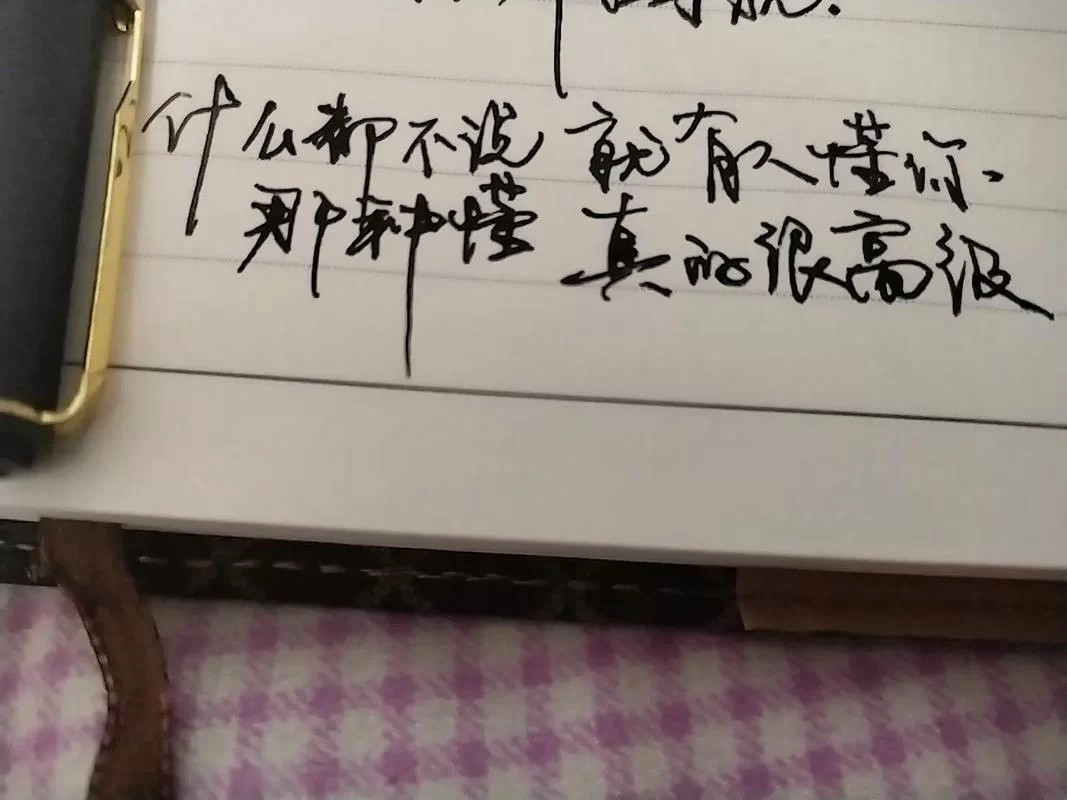 什么都不说 就有人懂你。
那种懂 真的很高级